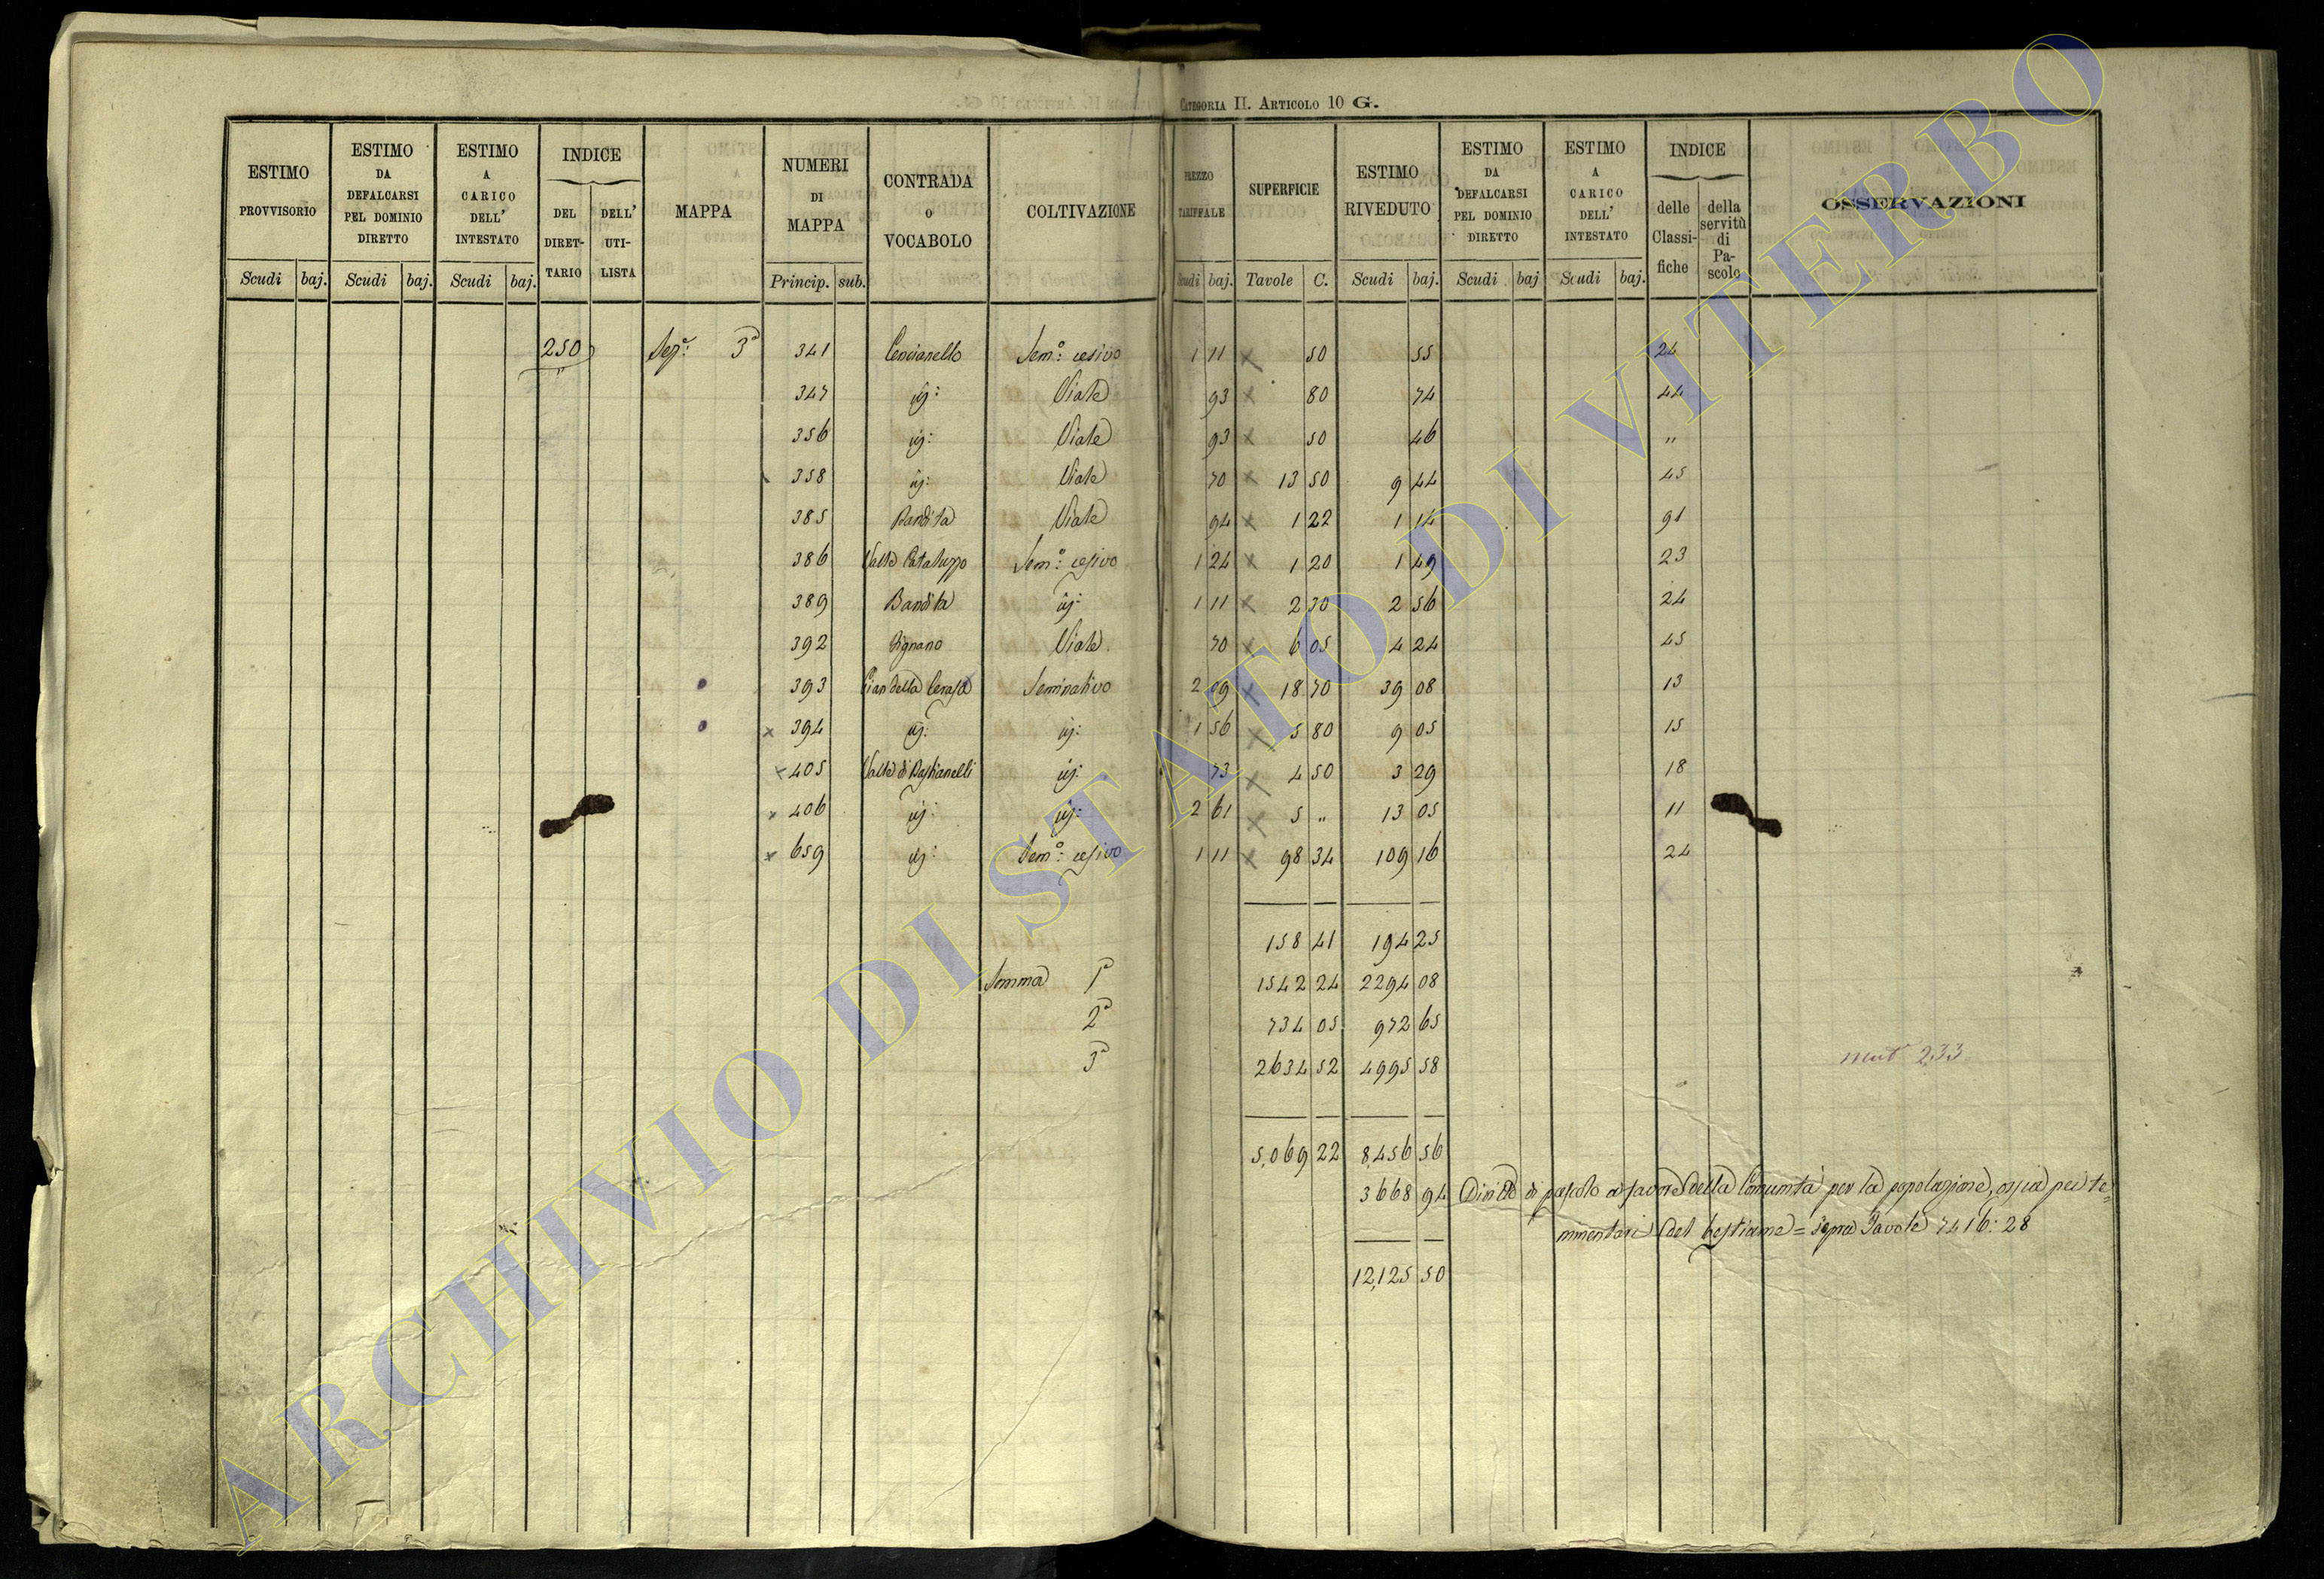 Categoria II. Articolo 10 G.
ESTIMO PROVVISORIO Scudi baj.
ESTIMO DA DEFALCARSI PEL DOMINIO DIRETTO Scudi baj.
ESTIMO A CARICO DELL' INTESTATO Scudi baj.
INDICE DEL DIRETTARIO DELL' UTILISTA
MAPPA
NUMERI DI MAPPA Princip. sub.
CONTRADA O VOCABOLO
COLTIVAZIONE
PREZZO TARIFFALE Scudi baj.
SUPERFICIE Tavole C.
ESTIMO RIVEDUTO Scudi baj.
ESTIMO DA DEFALCARSI PEL DOMINIO DIRETTO Scudi baj
ESTIMO A CARICO DELL' INTESTATO Scudi baj.
INDICE delle Classifiche della servitù di Pascolo
OSSERVAZIONI
250 Sez.e: 3a 341 Cencianello Sem.o: cesivo 1 11 x 50 55 24
347 id: Viate 93 x 80 74 44
356 id: Viate 93 x 50 46 "
358 id: Viate 70 x 13 50 9 44 45
385 Bandita Viate 94 x 1 22 1 14 91
386 Valle Sem.o: cesivo 1 24 x 1 20 1 49 23
389 Bandita id: 1 11 x 2 30 2 56 24
392 Pignano Viate 70 x 6 05 4 24 45
393 Pian della Cerasa Seminativo 2 09 x 18 70 39 08 13
x 394 id: id: 1 56 x 5 80 9 05 15
x 405 Valle di id: 73 x 4 50 3 29 18
x 406 id: id: 2 61 x 5 " 13 05 11
x 659 id: Sem.o: cesivo 1 11 x 98 34 109 16 24
158 41 194 25
Somma 1a 1542 24 2294 08
2a 734 05 972 65
3a 2634 52 4995 58
mut 233
5,069 22 8,456 56
3668 94 Diritto di pascolo a favore della Comunità per la popolazione, ossia pei te=
mentari del bestiame = sopra Tavole 7416: 28
12,125 50
ARCHIVIO DI STATO DI VITERBO